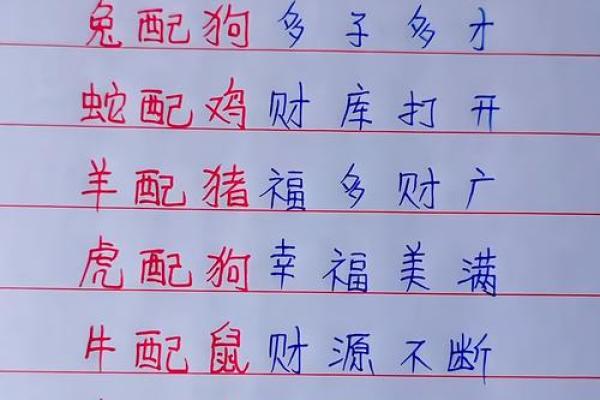 兔配狗多子多才
蛇配鸡财库打开
羊配猪福多财广
虎配狗幸福美满
牛配鼠财源不断